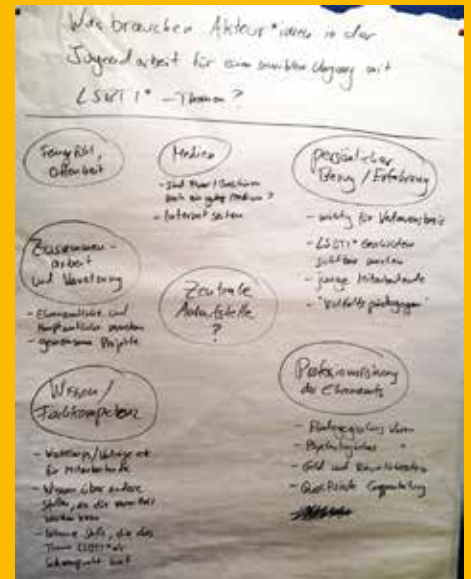 Was brauchen Akteur*innen in der
Jugendarbeit für einen sensiblen Umgang mit
LSBTI* - Themen?
Feingefühl,
Offenheit
Medien
- sind Flyer/Broschüren
noch ein gutes Medium?
- Internetseiten
persönlicher
Bezug/Erfahrung
- wichtig für
- LSBTI* Geschichten
sichtbar machen
- junge Mitarbeitende
- "Vielfaltspädagogen"
Zusammen-
arbeit
und Vernetzung
- Ehrenamtliche und
Hauptamtliche
- gemeinsame Projekte
Zentrale
Anlaufstelle
?
Wissen/
Fachkompetenz
- Workshops/Vorträge etc
für Mitarbeitende
- Wissen über andere
Stellen, an die
- Stelle, die das
Thema LSBTI* als
Schwerpunkt hat
Professionalisierung
des Ehrenamts
- Pädagogisches Wissen
- Psychologisches "
- Geld und Räumlichkeiten
- Qualifizierte